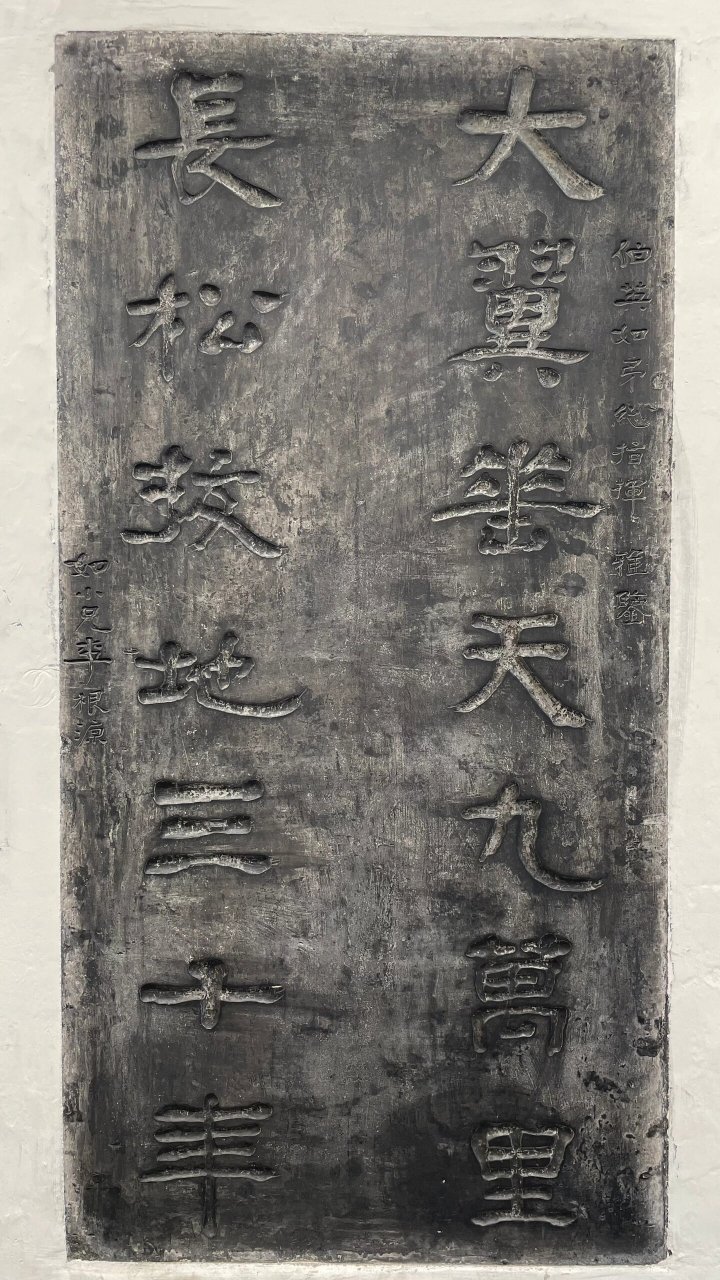 伯英如弟總指揮 雅鑒
大翼垂天九萬里
長松拔地三十年
如小兄李根源